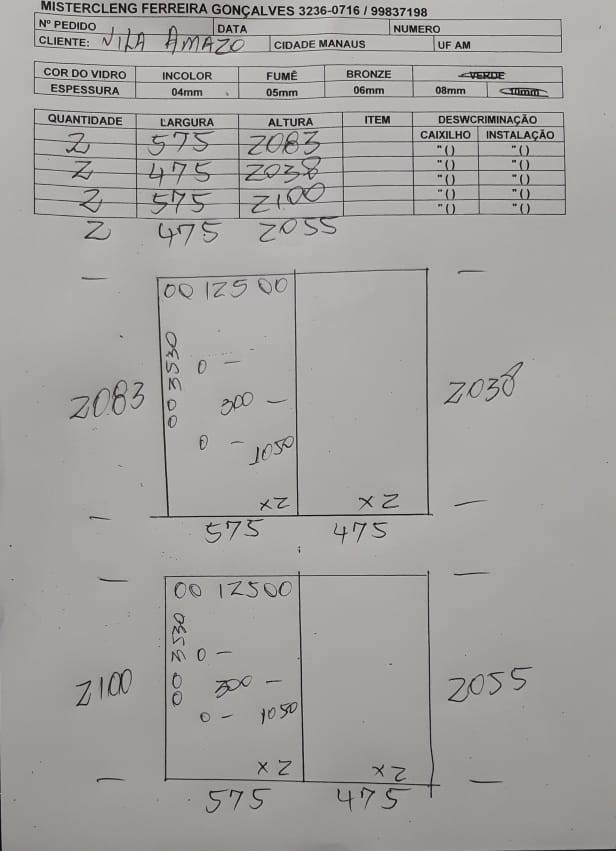 MISTERCLENG FERREIRA GONÇALVES 3236-0716 / 99837198
Nº PEDIDO DATA NUMERO
CLIENTE: NILA AMAZO CIDADE MANAUS UF AM
COR DO VIDRO INCOLOR FUMÊ BRONZE VERDE
ESPESSURA 04mm 05mm 06mm 08mm 10mm
QUANTIDADE LARGURA ALTURA ITEM DESWCRIMINAÇÃO
CAIXILHO INSTALAÇÃO
2 575 2083 "( ) "( )
2 475 2038 "( ) "( )
"( ) "( )
2 575 2100 "( ) "( )
"( ) "( )
2 475 2055
00 12500
00 3530
0 –
2083 300 – 2038
0 – 1050
x2 x2
575 475
00 12500
00 3530
0 –
2100 300 – 2055
0 – 1050
x2 x2
575 475